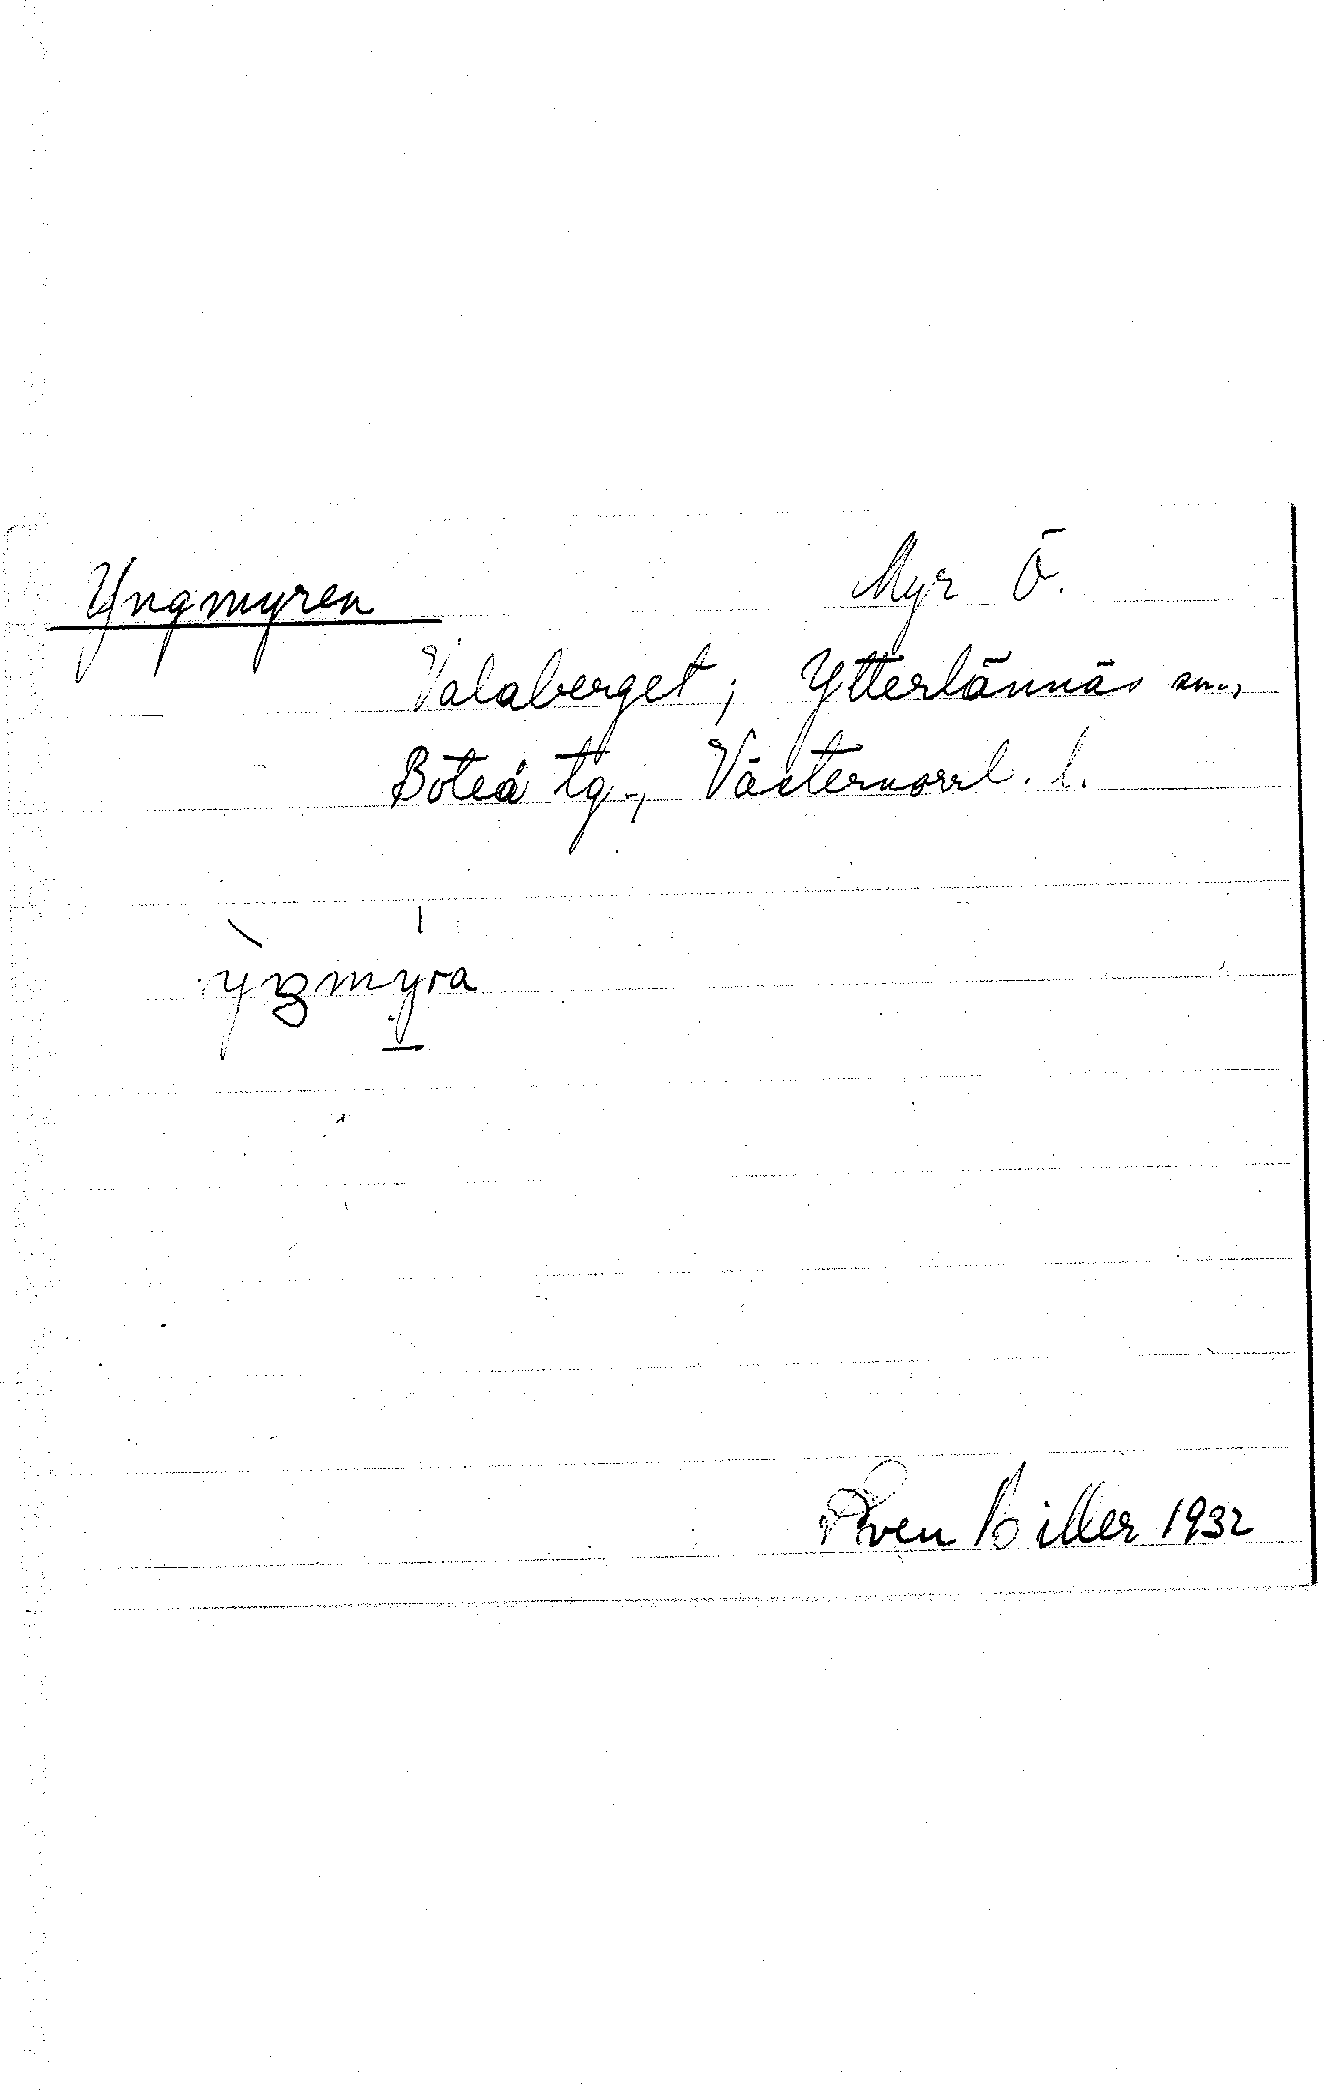 Yngmyren
Myr Ö.
Valaberget; Ytterlännäs sn.,
Boteå tg., Västernorrl. l.
Sven Hiller 1932